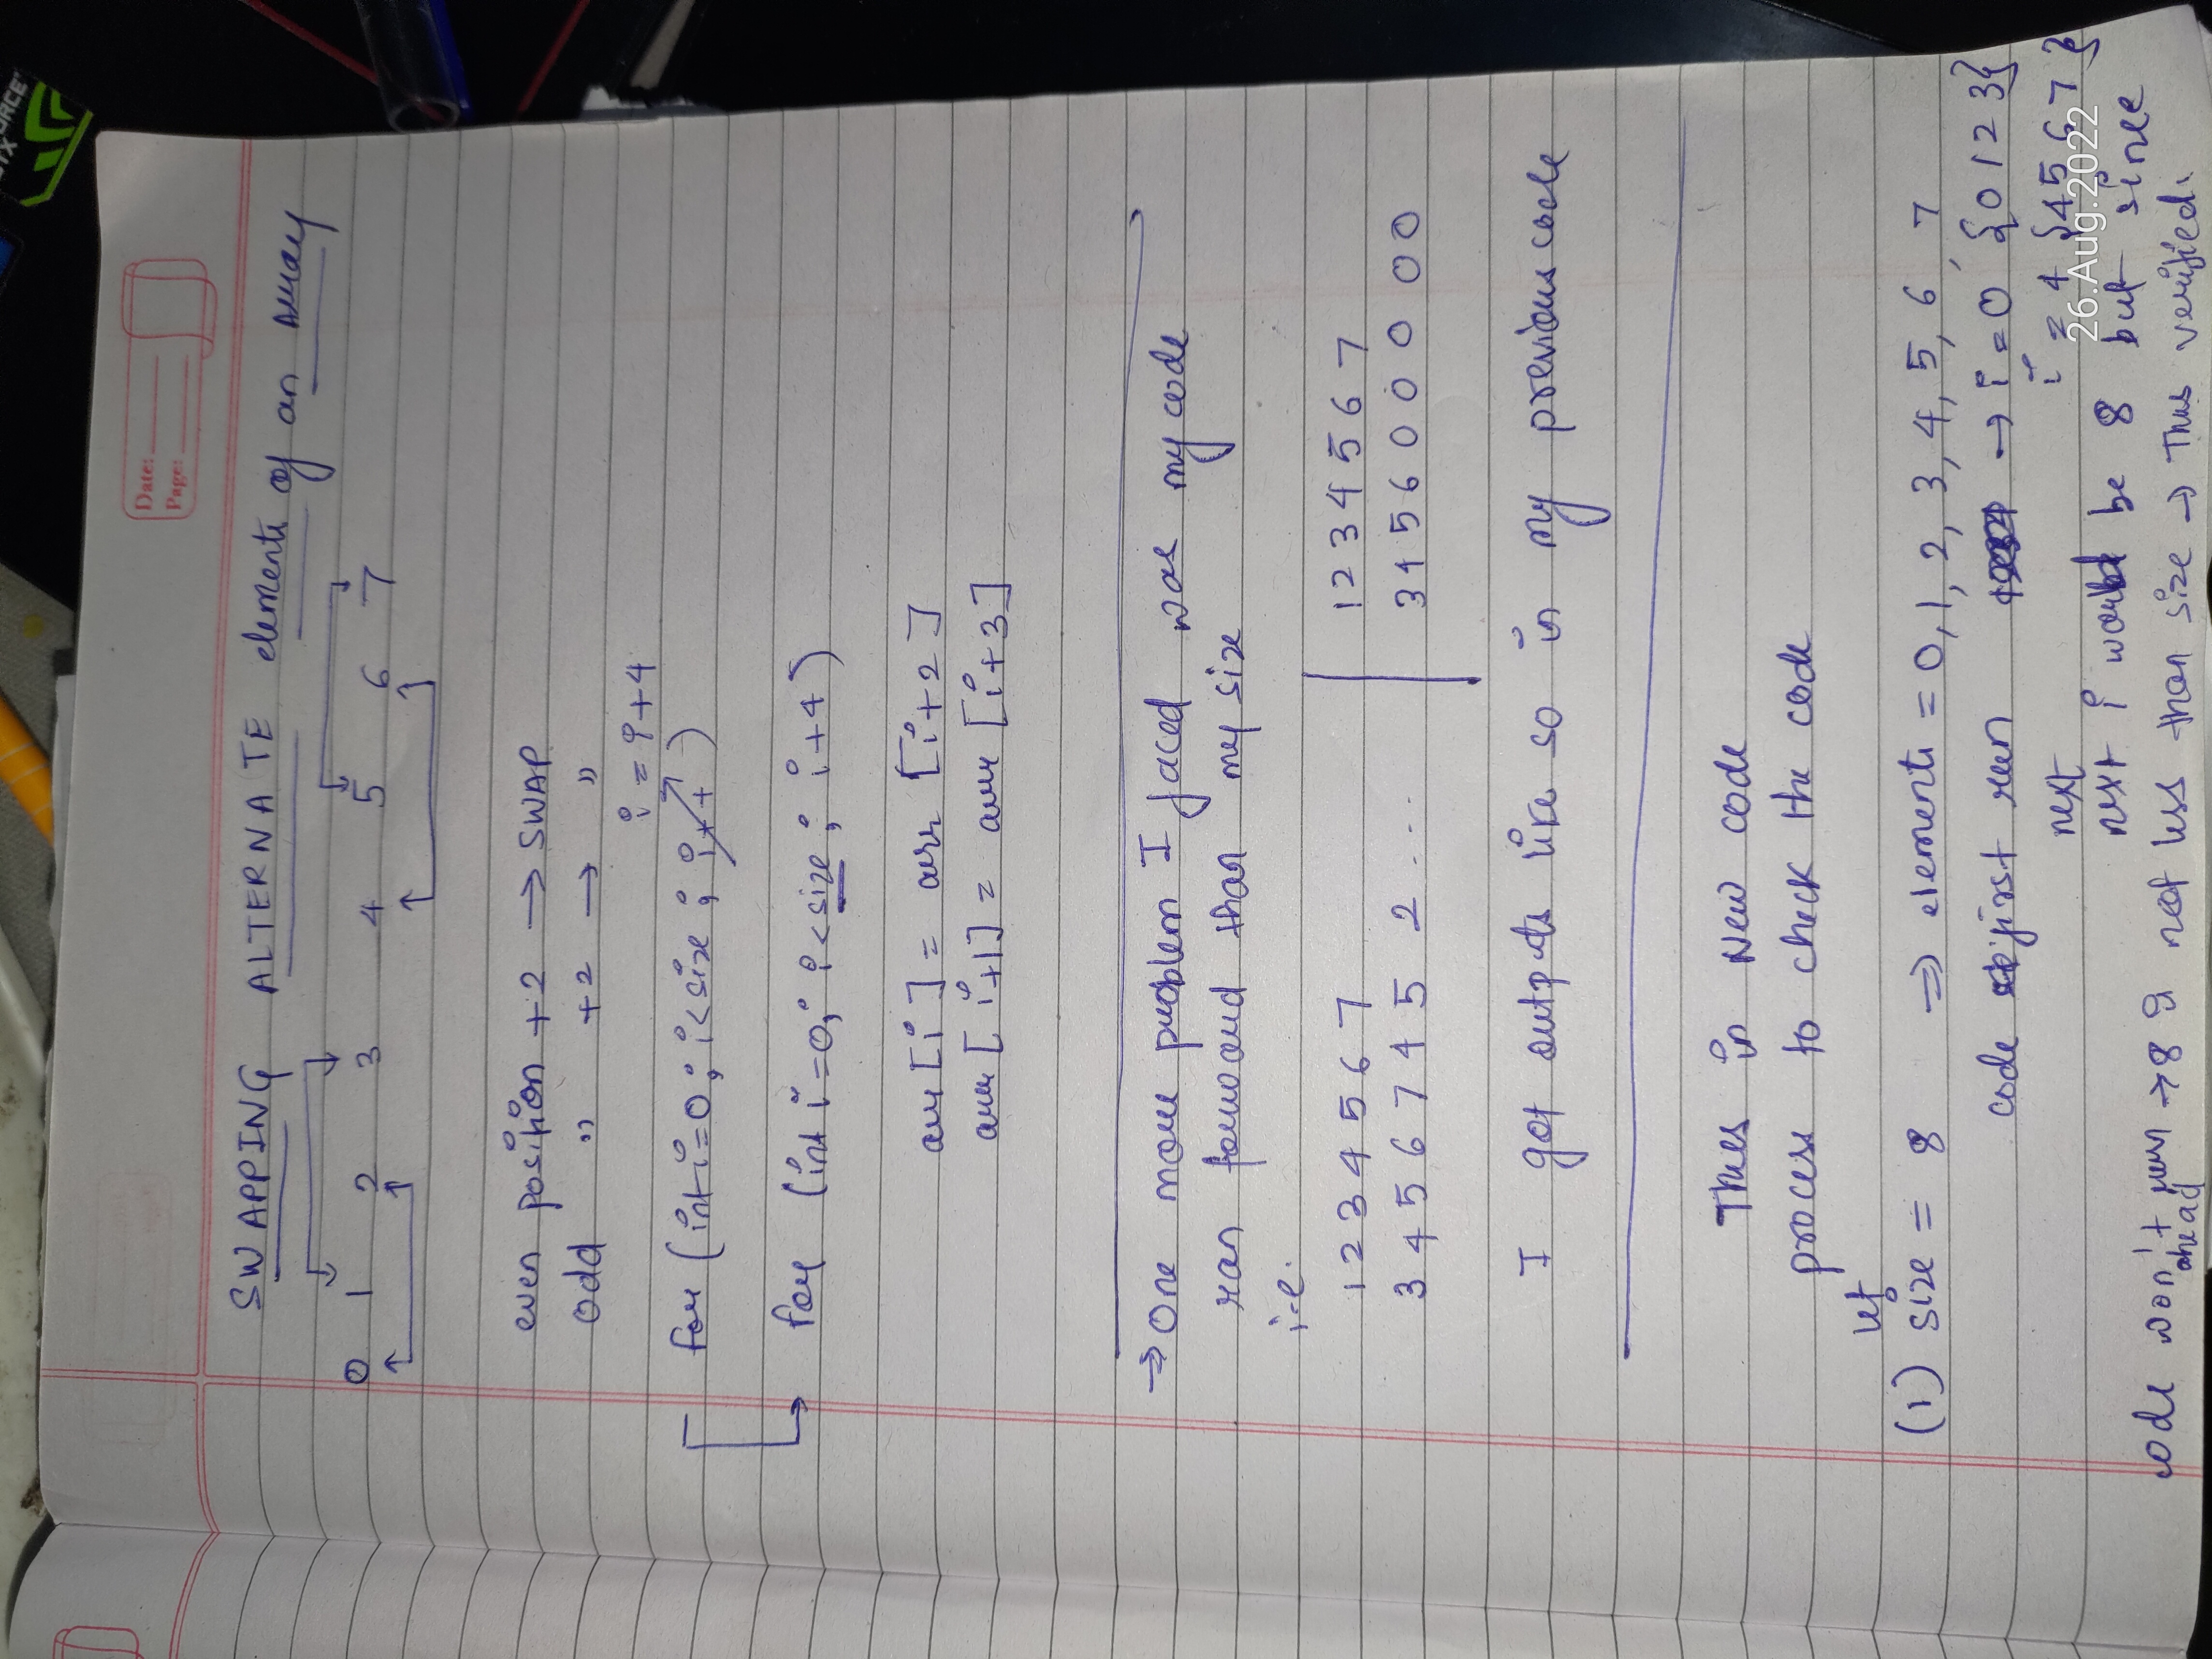 FORCE
GTX
Date:
Page:
SWAPPING ALTERNATE elements of an Array
0 1 2 3 4 5 6 7
even position +2 → SWAP
odd " +2 → "
i = i+4
for (int i=0; i<size; i++)
for (int i=0; i<size; i+4)
arr[i] = arr [i+2]
arr[i+1] = arr [i+3]
→ One more problem I faced was my code
ran forward than my size
i.e.
1 2 3 4 5 6 7
3 4 5 6 7 4 5 2 ...
1 2 3 4 5 6 7
3 4 5 6 0 0 0 0 0
I got outputs like so in my previous code
Thus in New code
process to check the code
let
(1) size = 8 ⇒ elements = 0, 1, 2, 3, 4, 5, 6, 7
code first run → i = 0 {0 1 2 3}
next i = 4 {4 5 6 7}
26.Aug.2022
next i would be 8 but since
code won't run → 8 is not less than size → Thus verified.
ahead